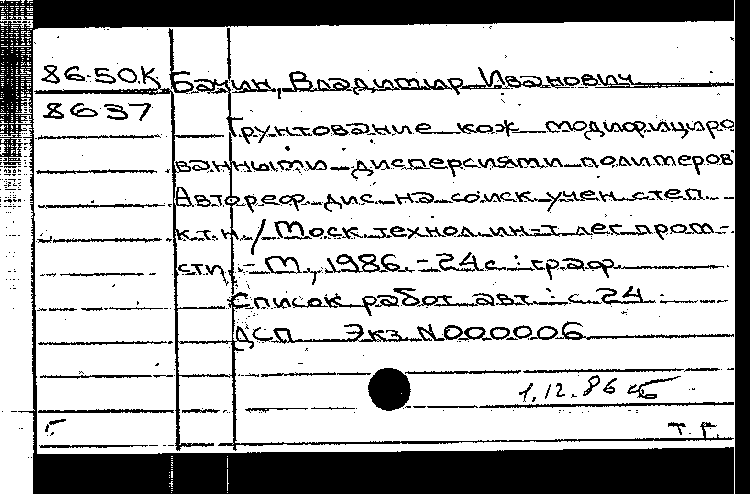 86-50К Бачин, Владимир Иванович
8637
Грунтование кож модифициро
ванными дисперсиями полимеров
Автореф. дис. на соиск. учен. степ.
к.т.н. / Моск. технол. ин-т лег. пром-
сти. - М., 1986. - 24 с : граф.
Список работ авт.: с. 24
ДСП Экз. N000006
1.12.86
Г Т. Г.